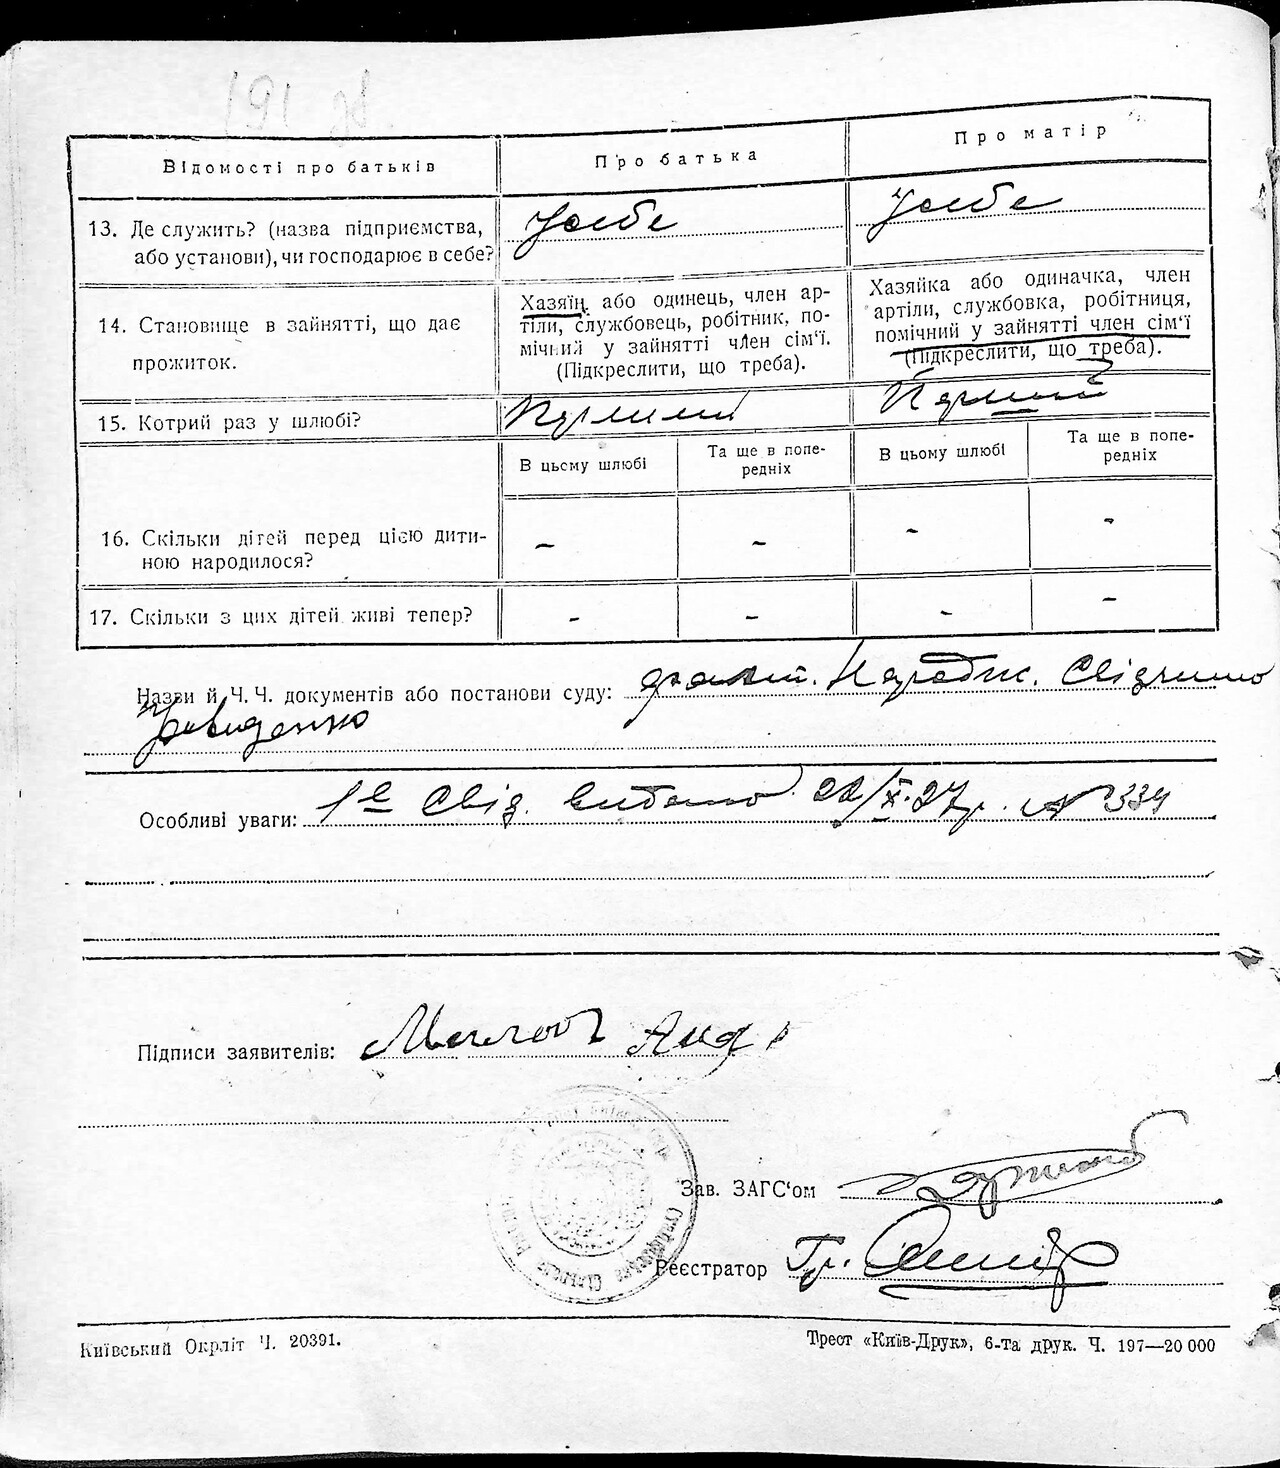 191 зв.
Відомості про батьків
Про батька
Про матір
13. Де служить? (назва підприємства, або установи), чи господарює в себе?
У себе
У себе
14. Становище в зайнятті, що дає прожиток.
Хазяїн або одинець, член ар-
тіли, службовець, робітник, по-
мічний у зайнятті член сім'ї.
(Підкреслити, що треба).
Хазяйка або одиначка, член
артіли, службовка, робітниця,
помічний у зайнятті член сім'ї
(Підкреслити, що треба).
15. Котрий раз у шлюбі?
Перший
Перший
В цьому шлюбі
Та ще в попе-
редніх
В цьому шлюбі
Та ще в попе-
редніх
16. Скільки дітей перед цією дити-
ною народилося?
– – – –
17. Скільки з цих дітей живі тепер?
– – – –
Назви й Ч. Ч. документів або постанови суду: факт. Народж. Свідчимо
Особливі уваги: 1е Свід. видано 22/X.27р. № 334
Підписи заявителів:
Зав. ЗАГС'ом
Реєстратор Гр.
Київський Окрліт Ч. 20391.
Трест «Київ-Друк», 6-та друк. Ч. 197—20 000